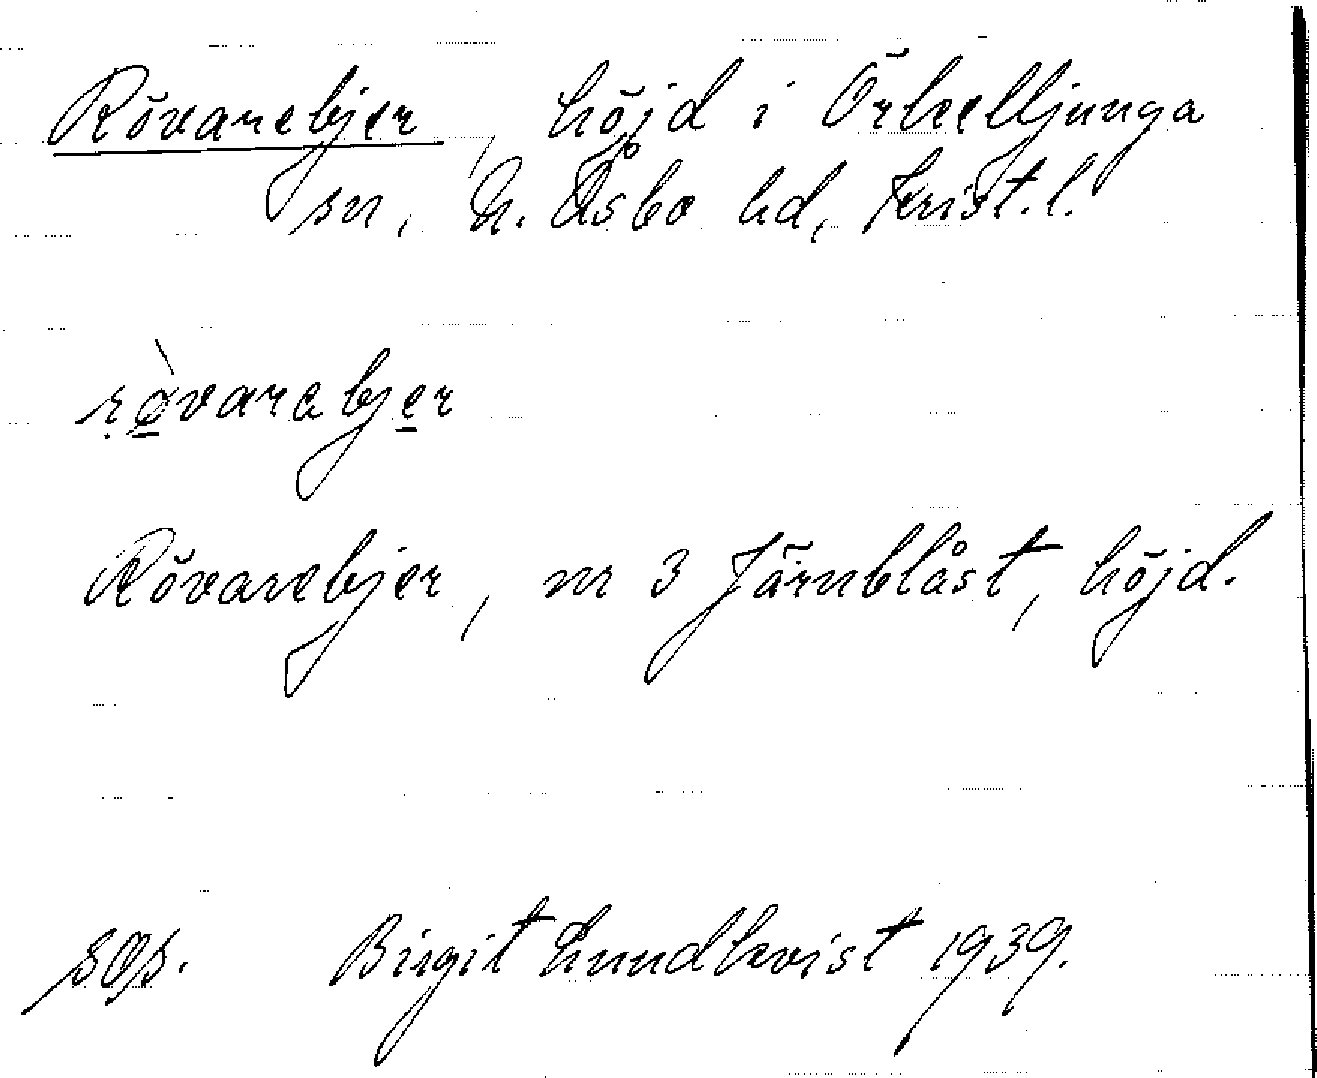 Rövarebjer, höjd i Örkelljunga
sn, N. Åsbo hd, Krist. l.
rø̀varebjer
Rövarebjer, nr 3 Järnblåst, höjd.
Birgit Lundkvist 1939.